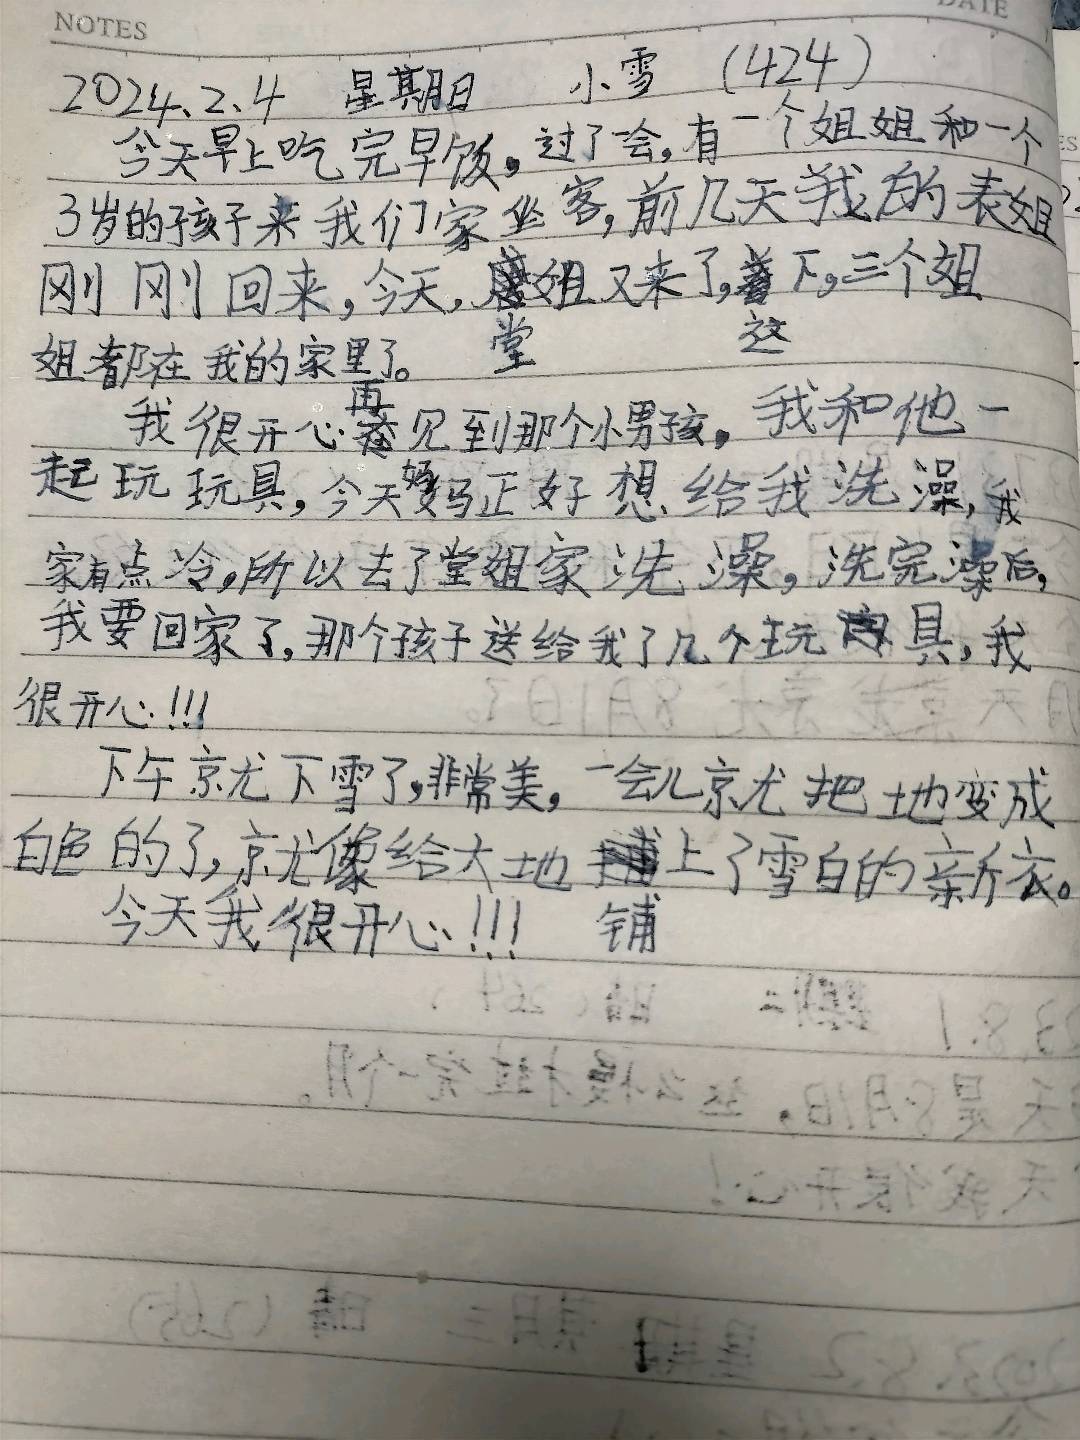 NOTES
DATE
2024.2.4 星期日 小雪 (424)
今天早上吃完早饭，过了一会，有一个姐姐和一个
3岁的孩子来我们家坐客，前几天我的表姐
刚刚回来，今天，堂姐又来了，这下，三个姐
姐都在我的家里了。
我很开心再见到那个小男孩，我和他一
起玩玩具，今天妈妈正好想给我洗澡，我
家有点冷，所以去了堂姐家洗澡，洗完澡后，
我要回家了，那个孩子送给我了几个玩具，我
很开心!!!
下午就下雪了，非常美，一会儿就把地变成
白色的了，就像给大地铺上了雪白的新衣。
今天我很开心!!!